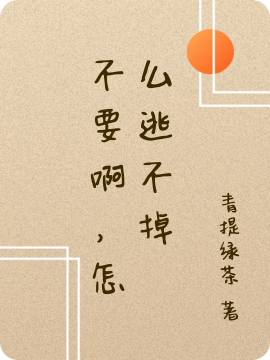 不要啊，怎
么逃不掉
青提绿茶 著